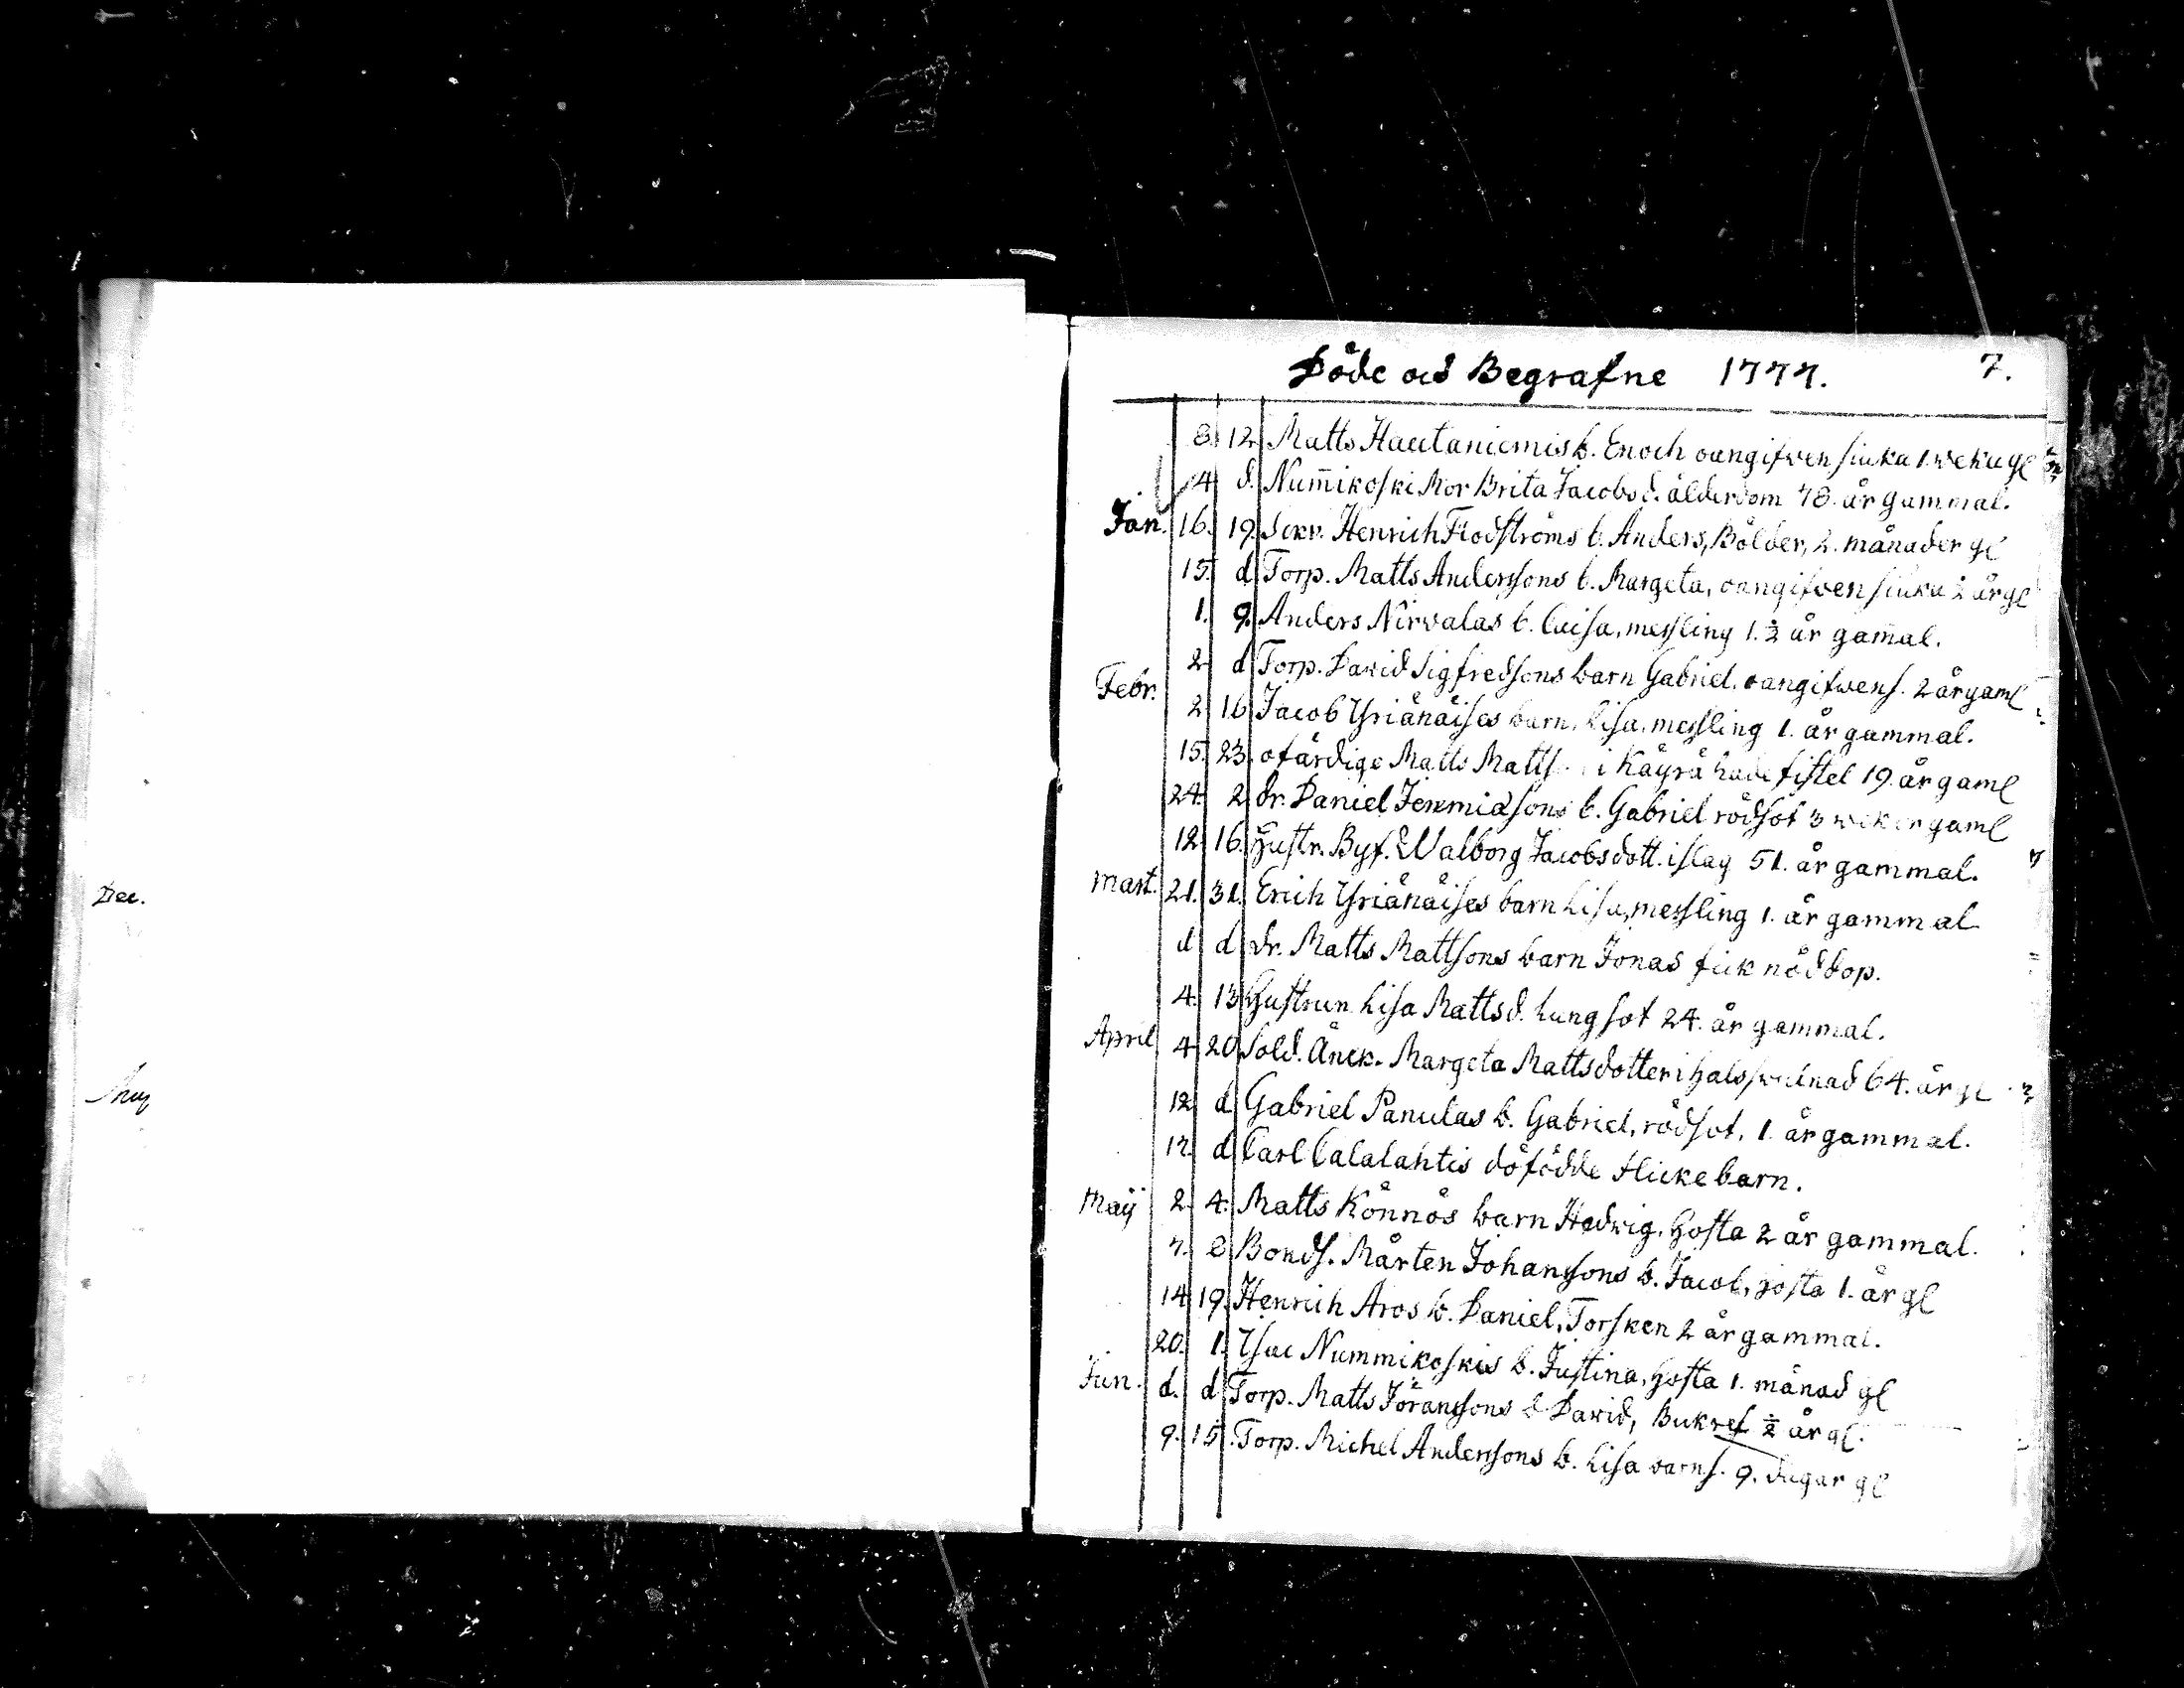 Döde och Begrafne 1777. 7.
8. 12. Matts Hautaniemis b. Enoch oangifwen siuka 1. weku gl
14 d. Num̄ikoski Mor Brita Jacobsd. ålderdom 78. år gammal.
Jan. 16. 19. Henrich Flodströms b. Anders, Bölder, 2. månader gl
15. d Torp. Matts Anderssons b. Margeta, oangifwen siuka ½ år gl
1. 9. Anders Nirwalas b. Caisa, messling 1. ½ år gam̄al.
2 d Torp. Dawid Sigfredsons barn Gabriel. oangifwen s. 2 år gaml
Febr. 2 16 Jacob Yriänäises barn, Lisa, messling 1. år gammal.
15. 23. ofärdige Matts Matts i Käyrä hade fistel 19. år gaml
24. 2 dr. Daniel Jeremiæsons b. Gabriel rödsot 3 weker gaml
12 16. Hustr. Byf. Walborg Jacobsdott. islag 51. år gammal.
Mart. 21. 31. Erich Yriänäises barn Lisa, messling 1. år gammal
d d dr. Matts Mattsons barn Jonas fick nöddop.
4. 13 Hustrun Lisa Mattsd. Lungsot 24. år gammal.
April 4 20 Sold. Änck. Margeta Mattsdotter i halsswulnad 64. år gl
12 d Gabriel Panulas b. Gabriel, rödsot, 1. år gammal.
17. d Carl Calalahtis döfödde flickebarn.
Maÿ 2. 4. Matts Könnös barn Hedwig, Hosta 2 år gammal.
7. 8 Bonds. Mårten Johanssons b. Jacob, Hosta 1. år gl
14 19. Henrich Aros b. Daniel, Torsken 2 år gammal.
20. 1. Ysac Nummikoskis b. Justina, Hosta 1. månad gl
Jun. d. d Torp. Matts Jöranssons b Dawid, Bukref ½ år gl.
9. 15. Torp. Michel Anderssons b. Lisa barns. 9. dagar gl
Dec.